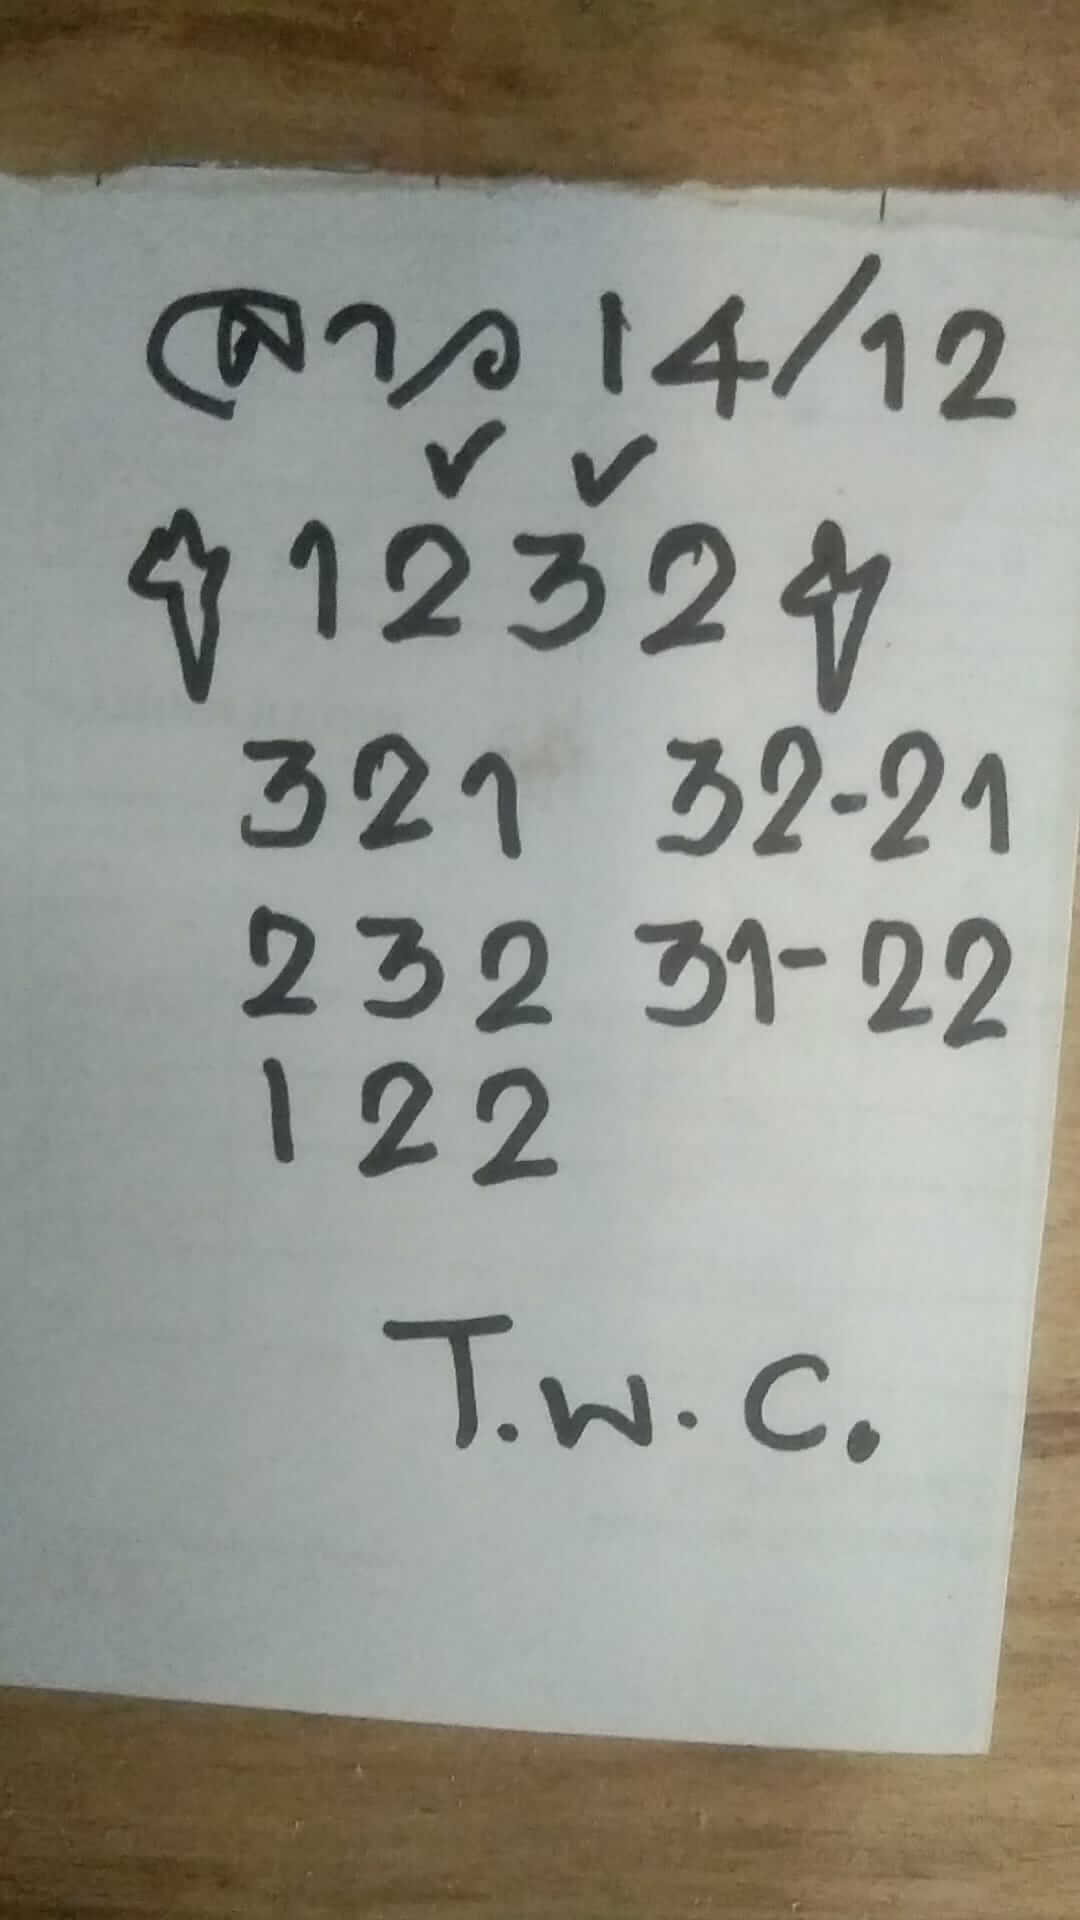 ลาว 14/12
1232
321 32-21
232 31-22
122
T.W.C.